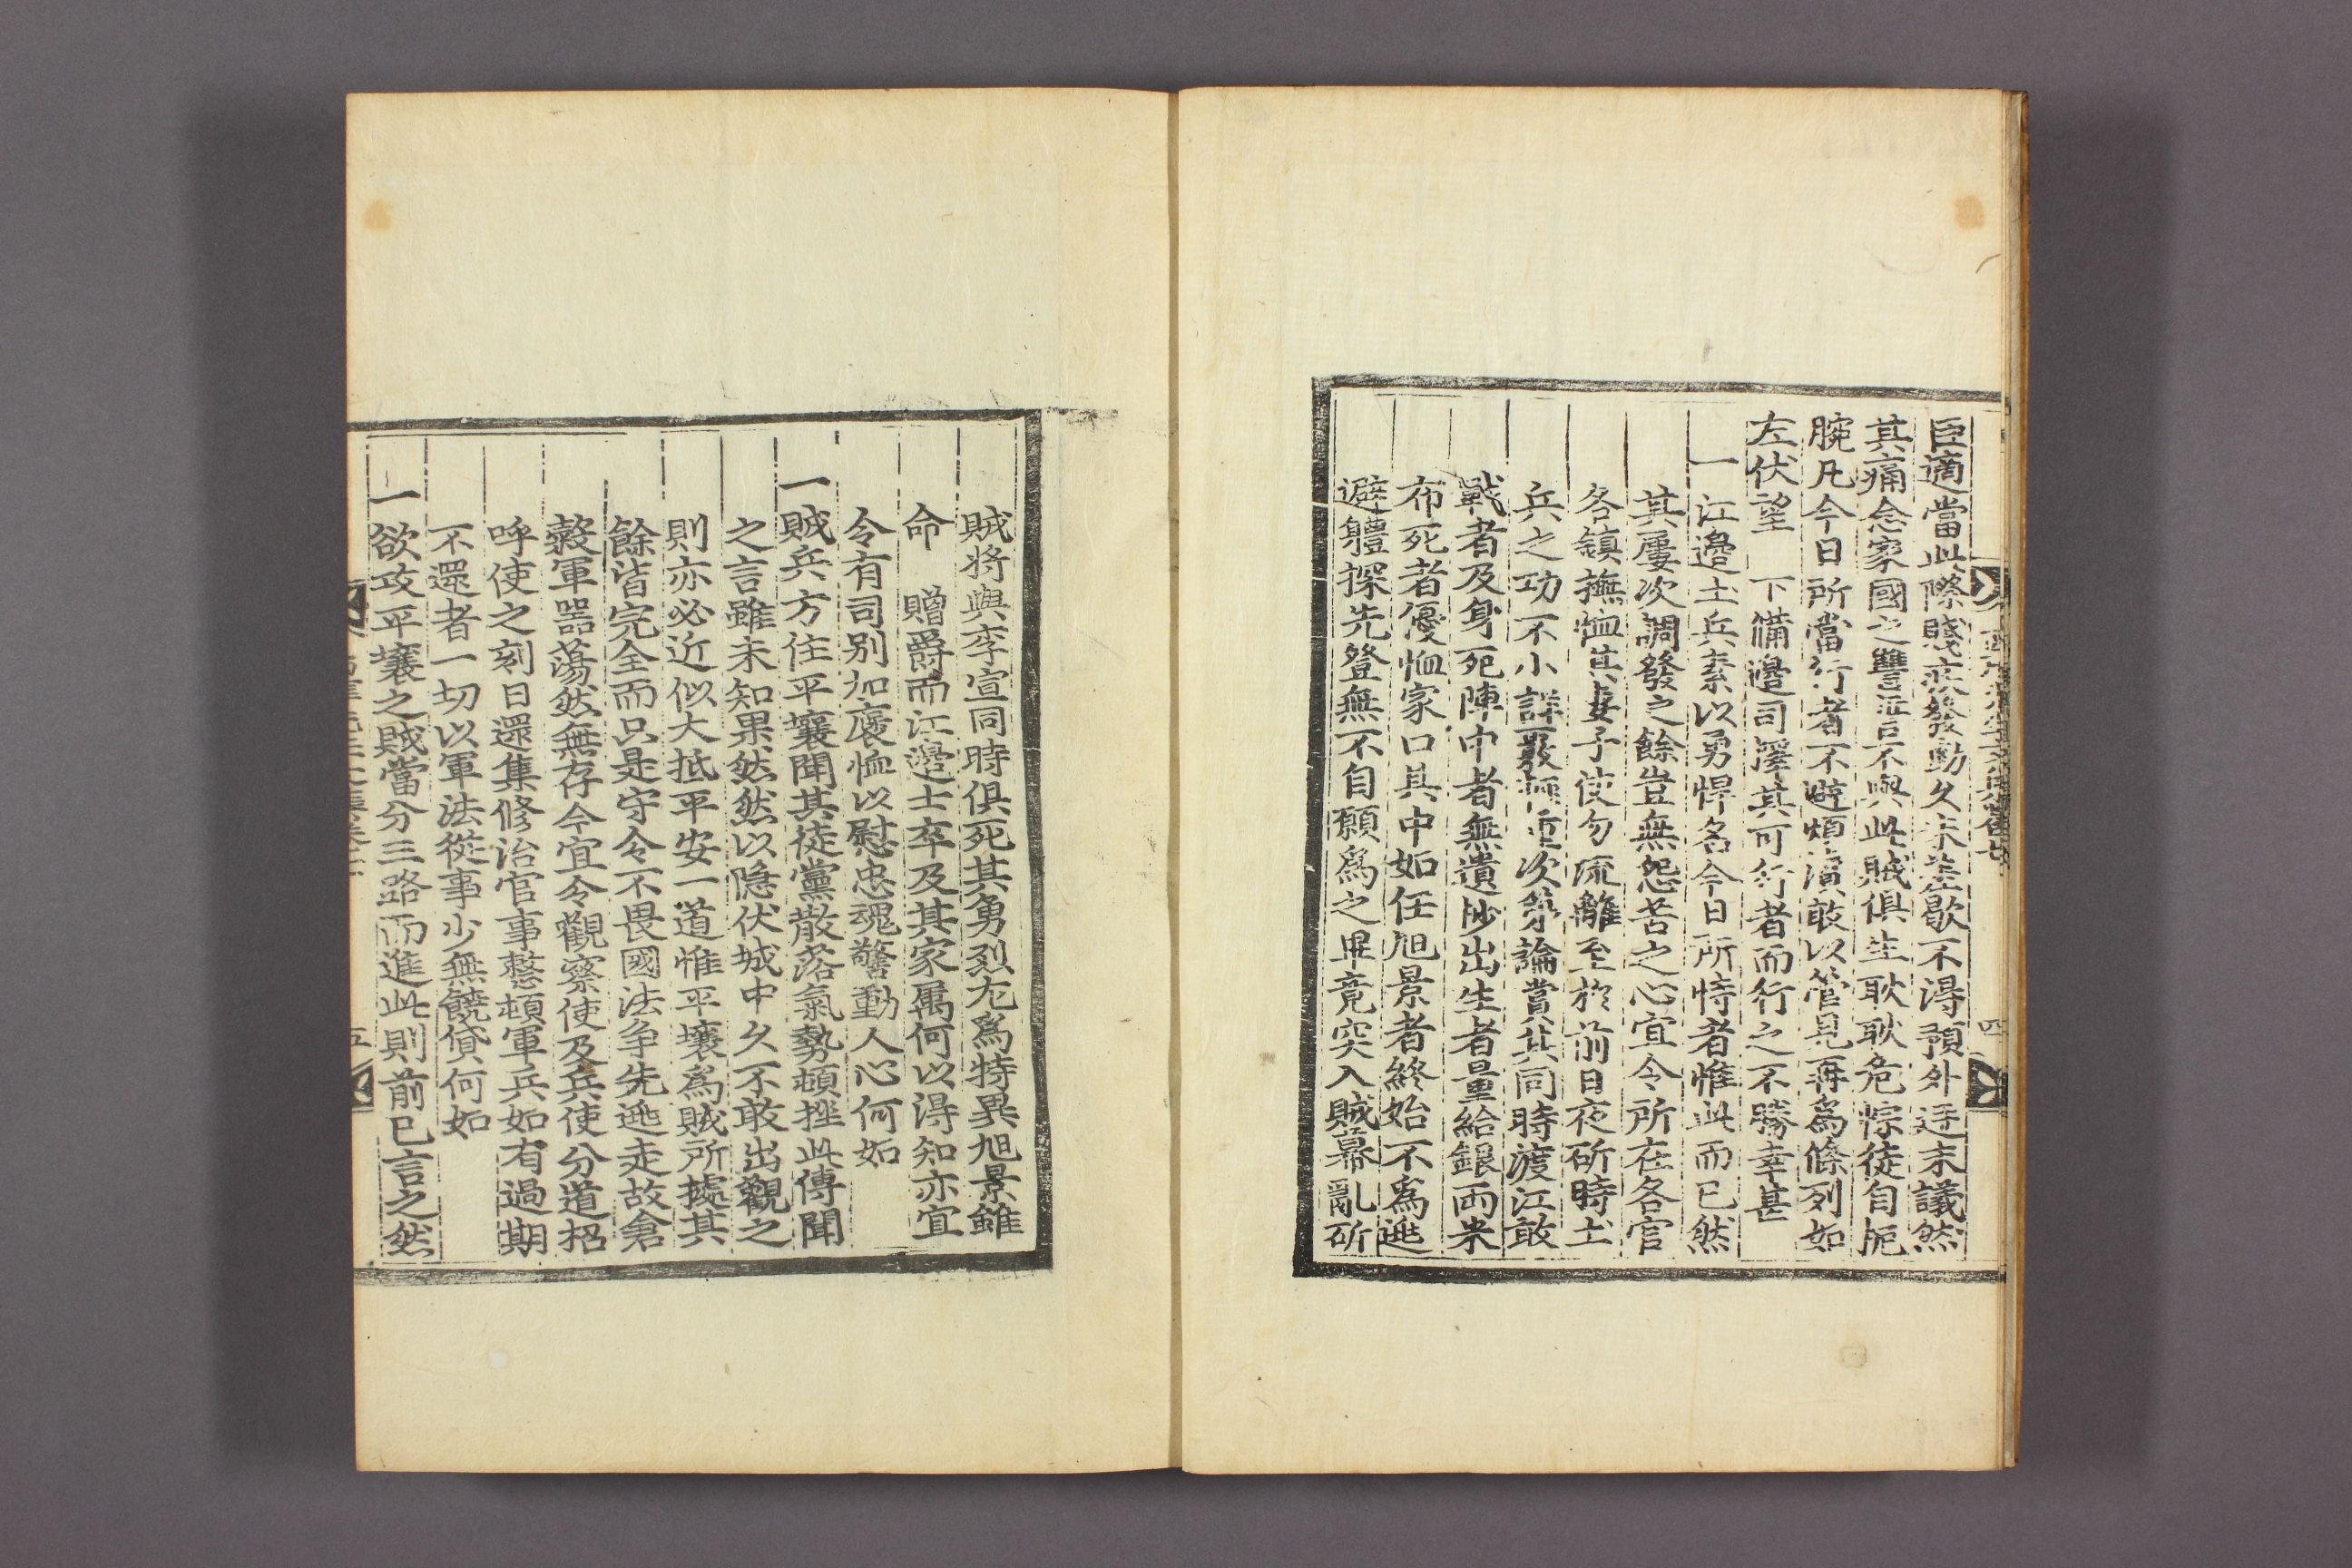 臣適當此際賤疾發動久未差歇不得預外廷末議然
其痛念家國之讐誓不與此賊俱生耿耿危悰徒自扼
腕凡今日所當行者不避煩瀆敢以管見再爲條列如
左伏望 下備邊司擇其可行者而行之不勝幸甚
一江邊土兵素以勇悍名今日所恃者惟此而已然
其屢次調發之餘豈無怨苦之心宜令所在各官
各鎭撫恤其妻子使勿流離至於前日夜斫時土
兵之功不小詳覈輕重次第論賞其同時渡江敢
戰者及身死陣中者無遺抄出生者量給銀兩米
布死者優恤家口其中如任旭景者終始不爲逃
避軆探先登無不自願爲之畢竟突入賊幕亂斫
賊將與李宣同時俱死其勇烈尤爲特異旭景雖
命 贈爵而江邊士卒及其家属何以得知亦宜
令有司別加褒恤以慰忠魂警動人心何如
一賊兵方住平壤聞其徒黨散落氣勢頓挫此傳聞
之言雖未知果然然以隱伏城中久不敢出觀之
則亦必近似大抵平安一道惟平壤爲賊所據其
餘皆完全而只是守令不畏國法争先逃走故倉
糓軍器蕩然無存今宜令觀察使及兵使分道招
呼使之刻日還集修治官事整頓軍兵如有過期
不還者一切以軍法從事少無饒貸何如
一欲攻平壤之賊當分三路而進此則前已言之然
四
五